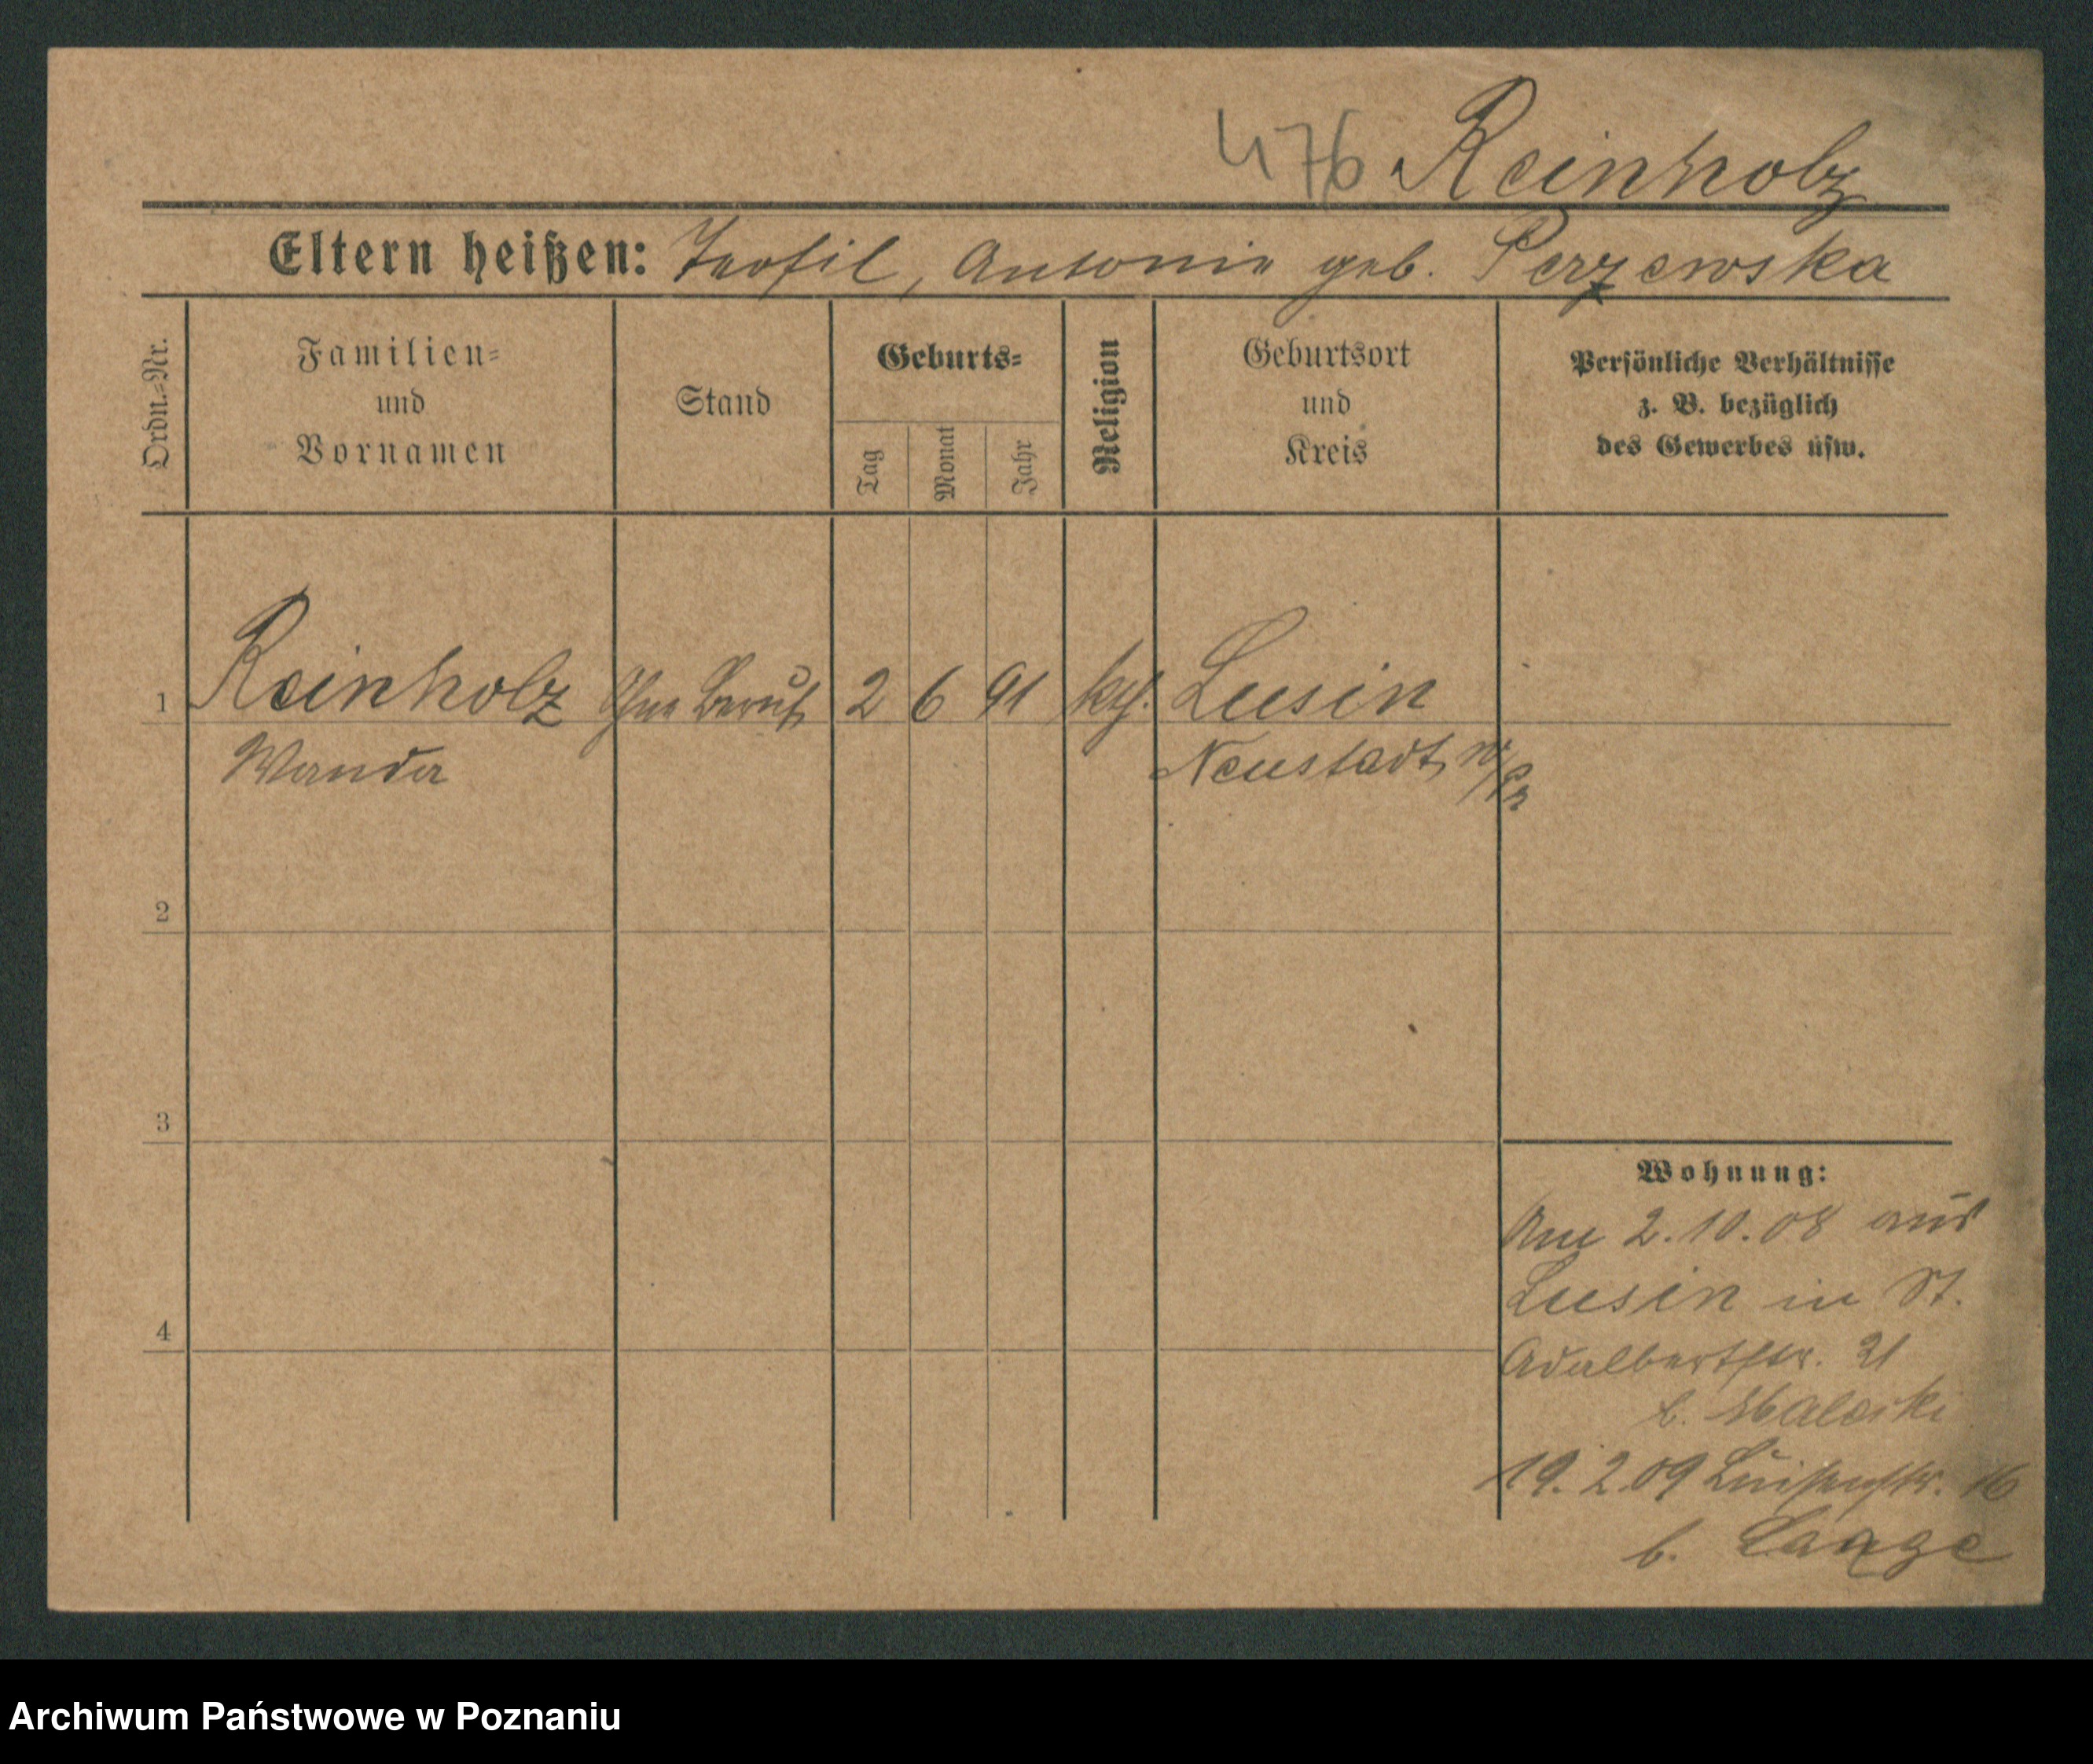 476 Reinholz
Eltern heißen: Teofil, Antonie geb. Perzewska
Ordn.-Nr.
Familien-
und
Vornamen
Stand
Geburts-
Tag
Monat
Jahr
Religion
Geburtsort
und
Kreis
Persönliche Verhältnisse
z. B. bezüglich
des Gewerbes usw.
1 Reinholz Ohne Beruf 2 6 91 kth. Lusin
Wanda Neustadt W/Pr
2
3
4
Wohnung:
Am 2.10.08 aus
Lusin in St.
Adalbertstr. 21
b.
19.2.09 Luisenstr. 16
b. Lange
Archiwum Państwowe w Poznaniu